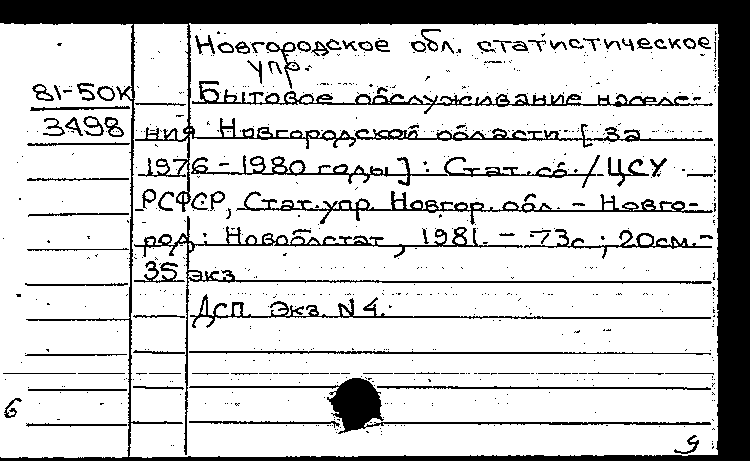 Новгородское обл. статистическое
упр.
81-50К Бытовое обслуживание населе-
3498 ния Новгородской области [за
1976-1980 годы] : Стат. сб. / ЦСУ
РСФСР, Стат. упр. Новгор. обл. - Новго-
род : Новоблстат, 1981. - 73с ; 20см. -
35 экз
Дсп. Экз. N 4.
6